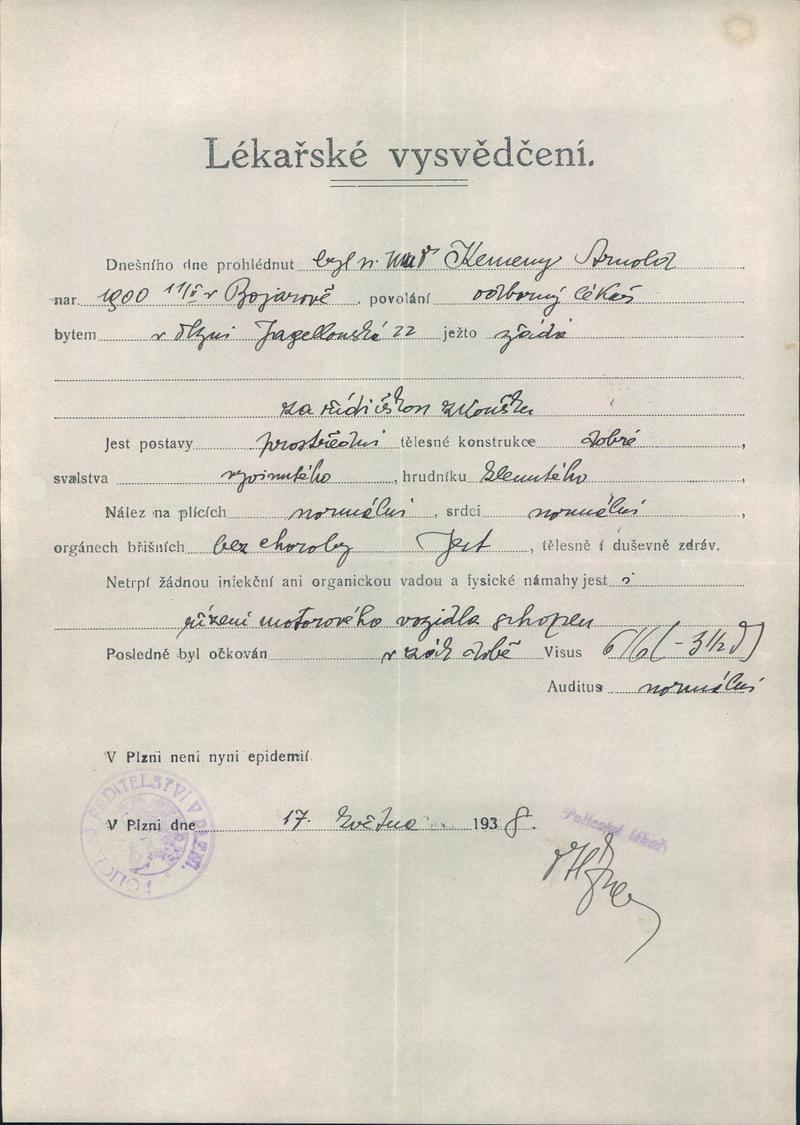 Lékařské vysvědčení.
Dnešního dne prohlédnut byl p. MUDr Kemeny Arnold
nar. 1900 11/5 v Bojarově . povolání odborný lékař
bytem v Plzni Jagellonská 22 ježto žádá
za řidičskou zkoušku
Jest postavy prostřední tělesné konstrukce dobré ,
svalstva vyvinutého , hrudníku klenutého
Nález na plících normální , srdci normální ,
orgánech břišních bez choroby Jest , tělesně i duševně zdráv.
Netrpí žádnou infekční ani organickou vadou a fysické námahy jest
řízení motorového vozidla schopen
Posledně byl očkován v zák. době Visus 6/6 (-3 1/2 D)
Auditus normální
V Plzni neni nyni epidemií
V Plzni dne 17. května 1938.
Policejní lékař
POLICEJNÍ ŘEDITELSTVÍ V PLZNI